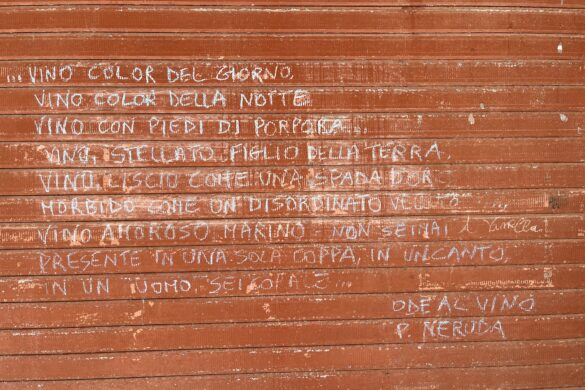 ... VINO COLOR DEL GIORNO,
VINO COLOR DELLA NOTTE
VINO CON PIEDI DI PORPORA...
VINO, STELLATO FIGLIO DELLA TERRA,
VINO, LISCIO COME UNA SPADA D'OR
MORBIDO COME UN DISORDINATO ...
VINO AMOROSO, MARINO NON SEI MAI
PRESENTE IN UNA SOLA COPPA, IN UN CANTO,
IN UN UOMO, SEI CORALE...
ODE AL VINO
P. NERUDA